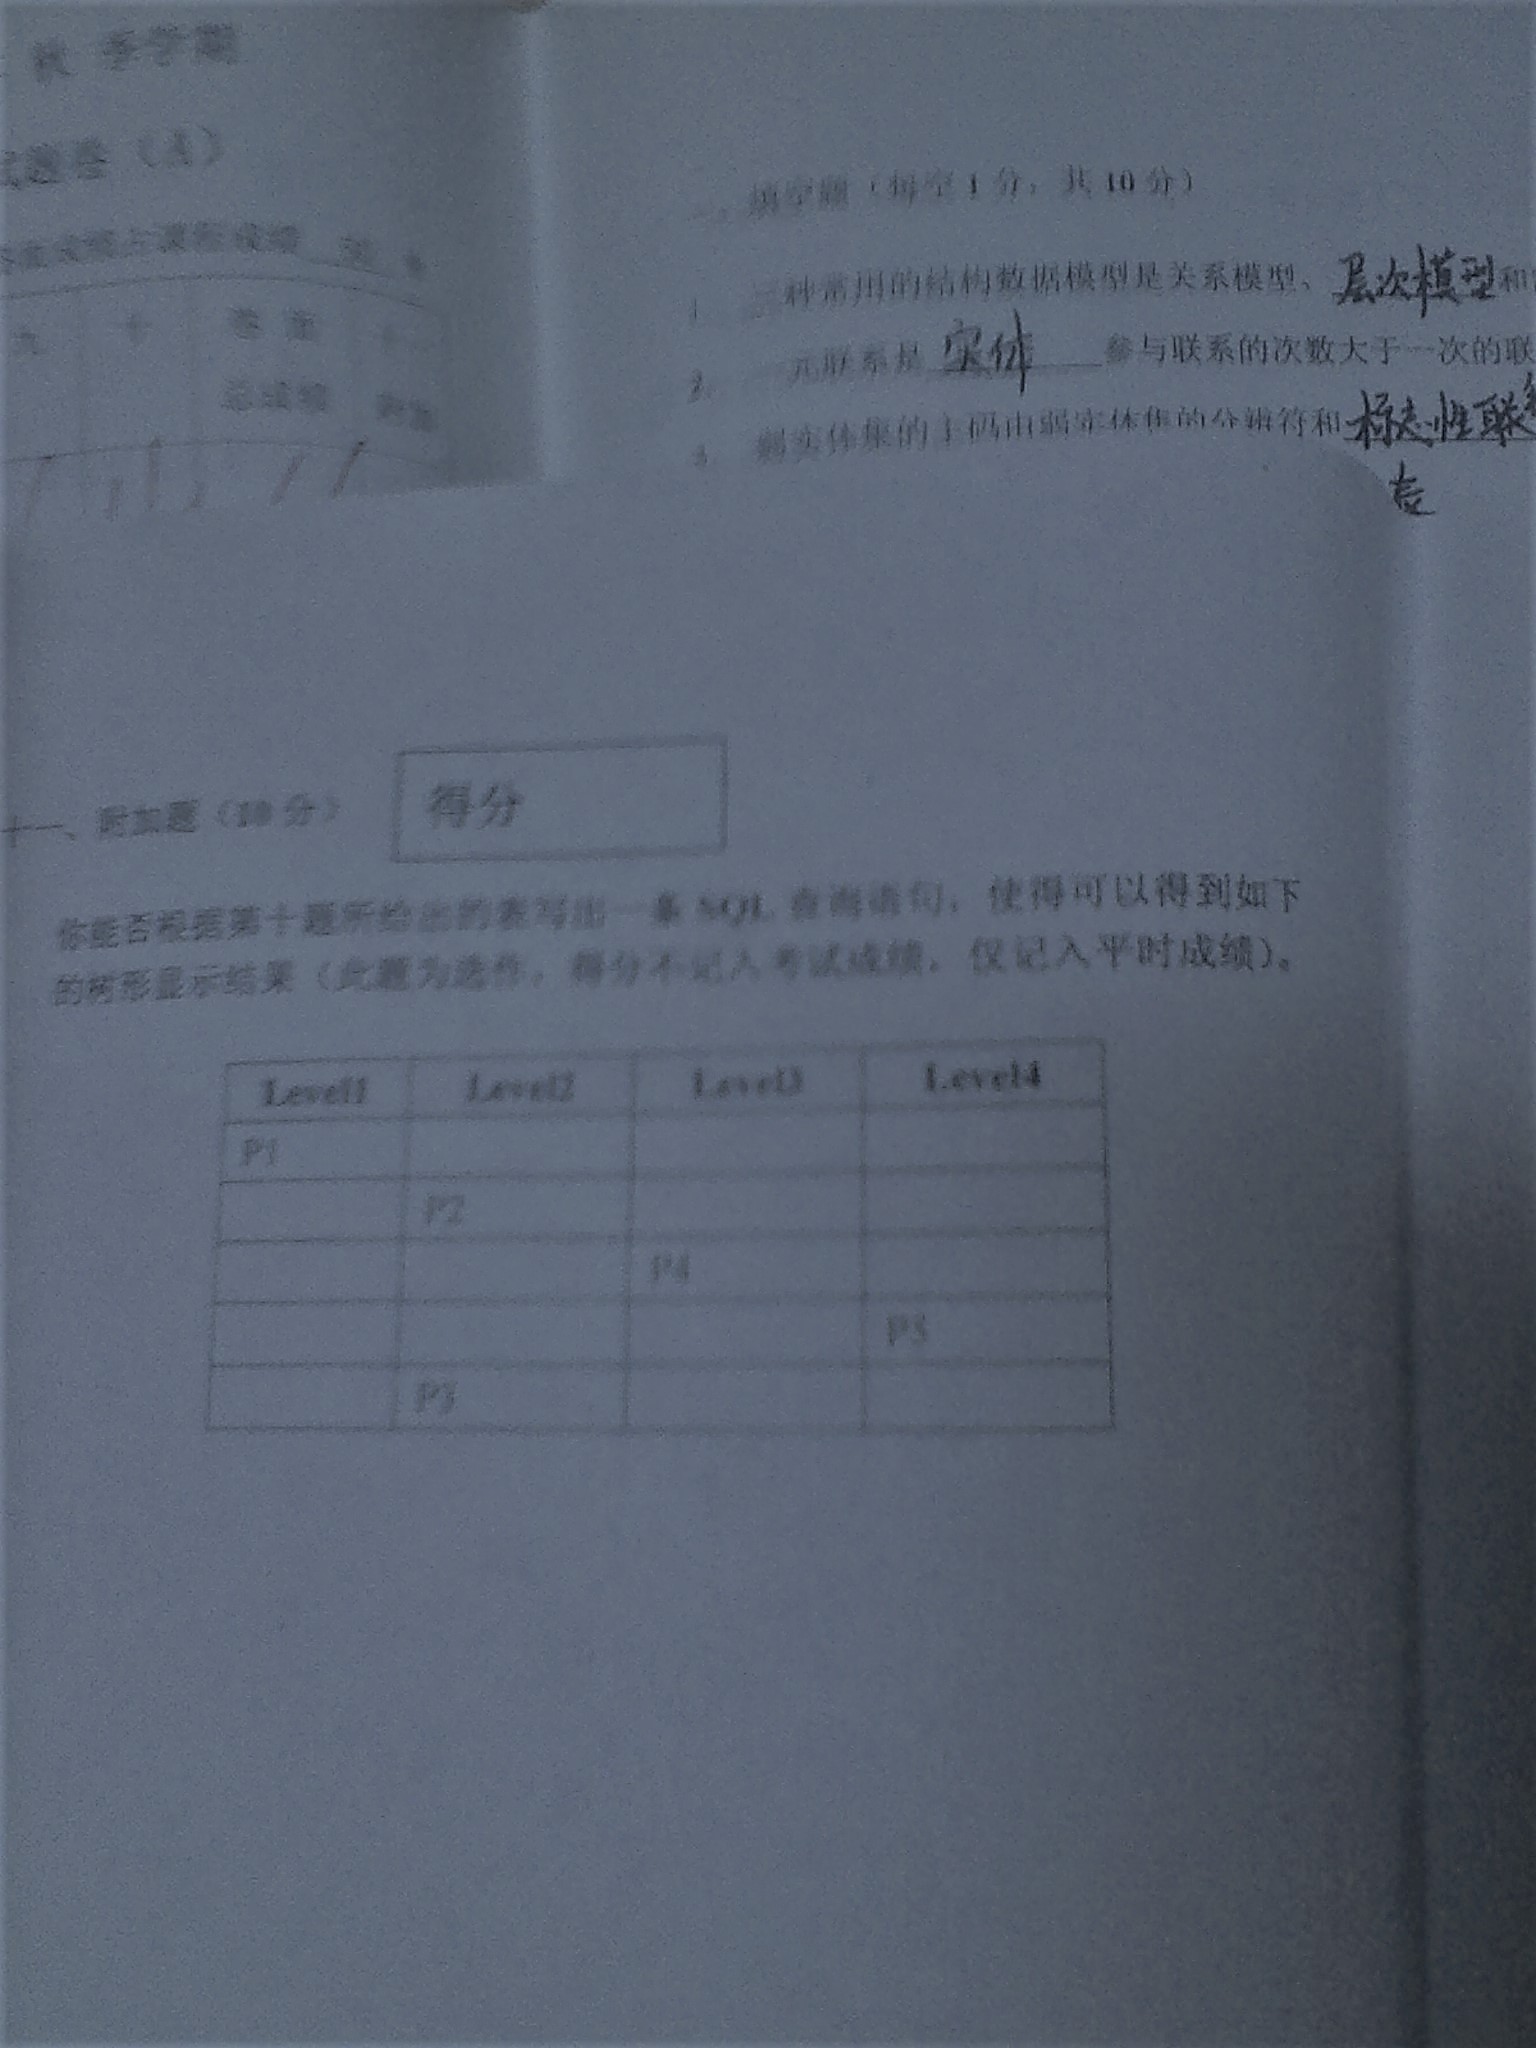 秋 季学期
试题卷（A）
九 十 卷面
总成绩
一、填空题（每空 1 分，共 10 分）
1. 三种常用的结构数据模型是关系模型、层次模型和
2. 一元联系是 实体 参与联系的次数大于一次的联
3. 弱实体集的主码由弱实体集的分辨符和标志性联系
十一、附加题（10 分）
得分
你能否根据第十题所给出的表写出一条 SQL 查询语句，使得可以得到如下
的树形显示结果（此题为选作，得分不记入考试成绩，仅记入平时成绩）。
Level1 Level2 Level3 Level4
P1
P2
P4
P5
P3